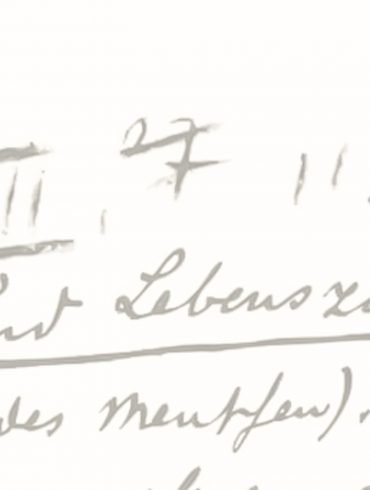 II, 27 11
und Lebensz
des Menschen).